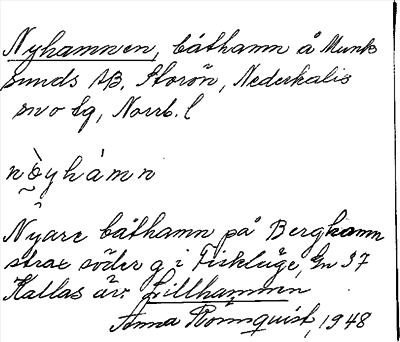 Nyhamnen, båthamn å Munk
sunds AB. Storön, Nederkalix
sn o tg, Norrb. l
nỳhámn
Nyare båthamn på Berghamn
strax söder g i Fiskläge, Gn 37
Kallas äv. Lillhamnen
Anna Rönnquist, 1948